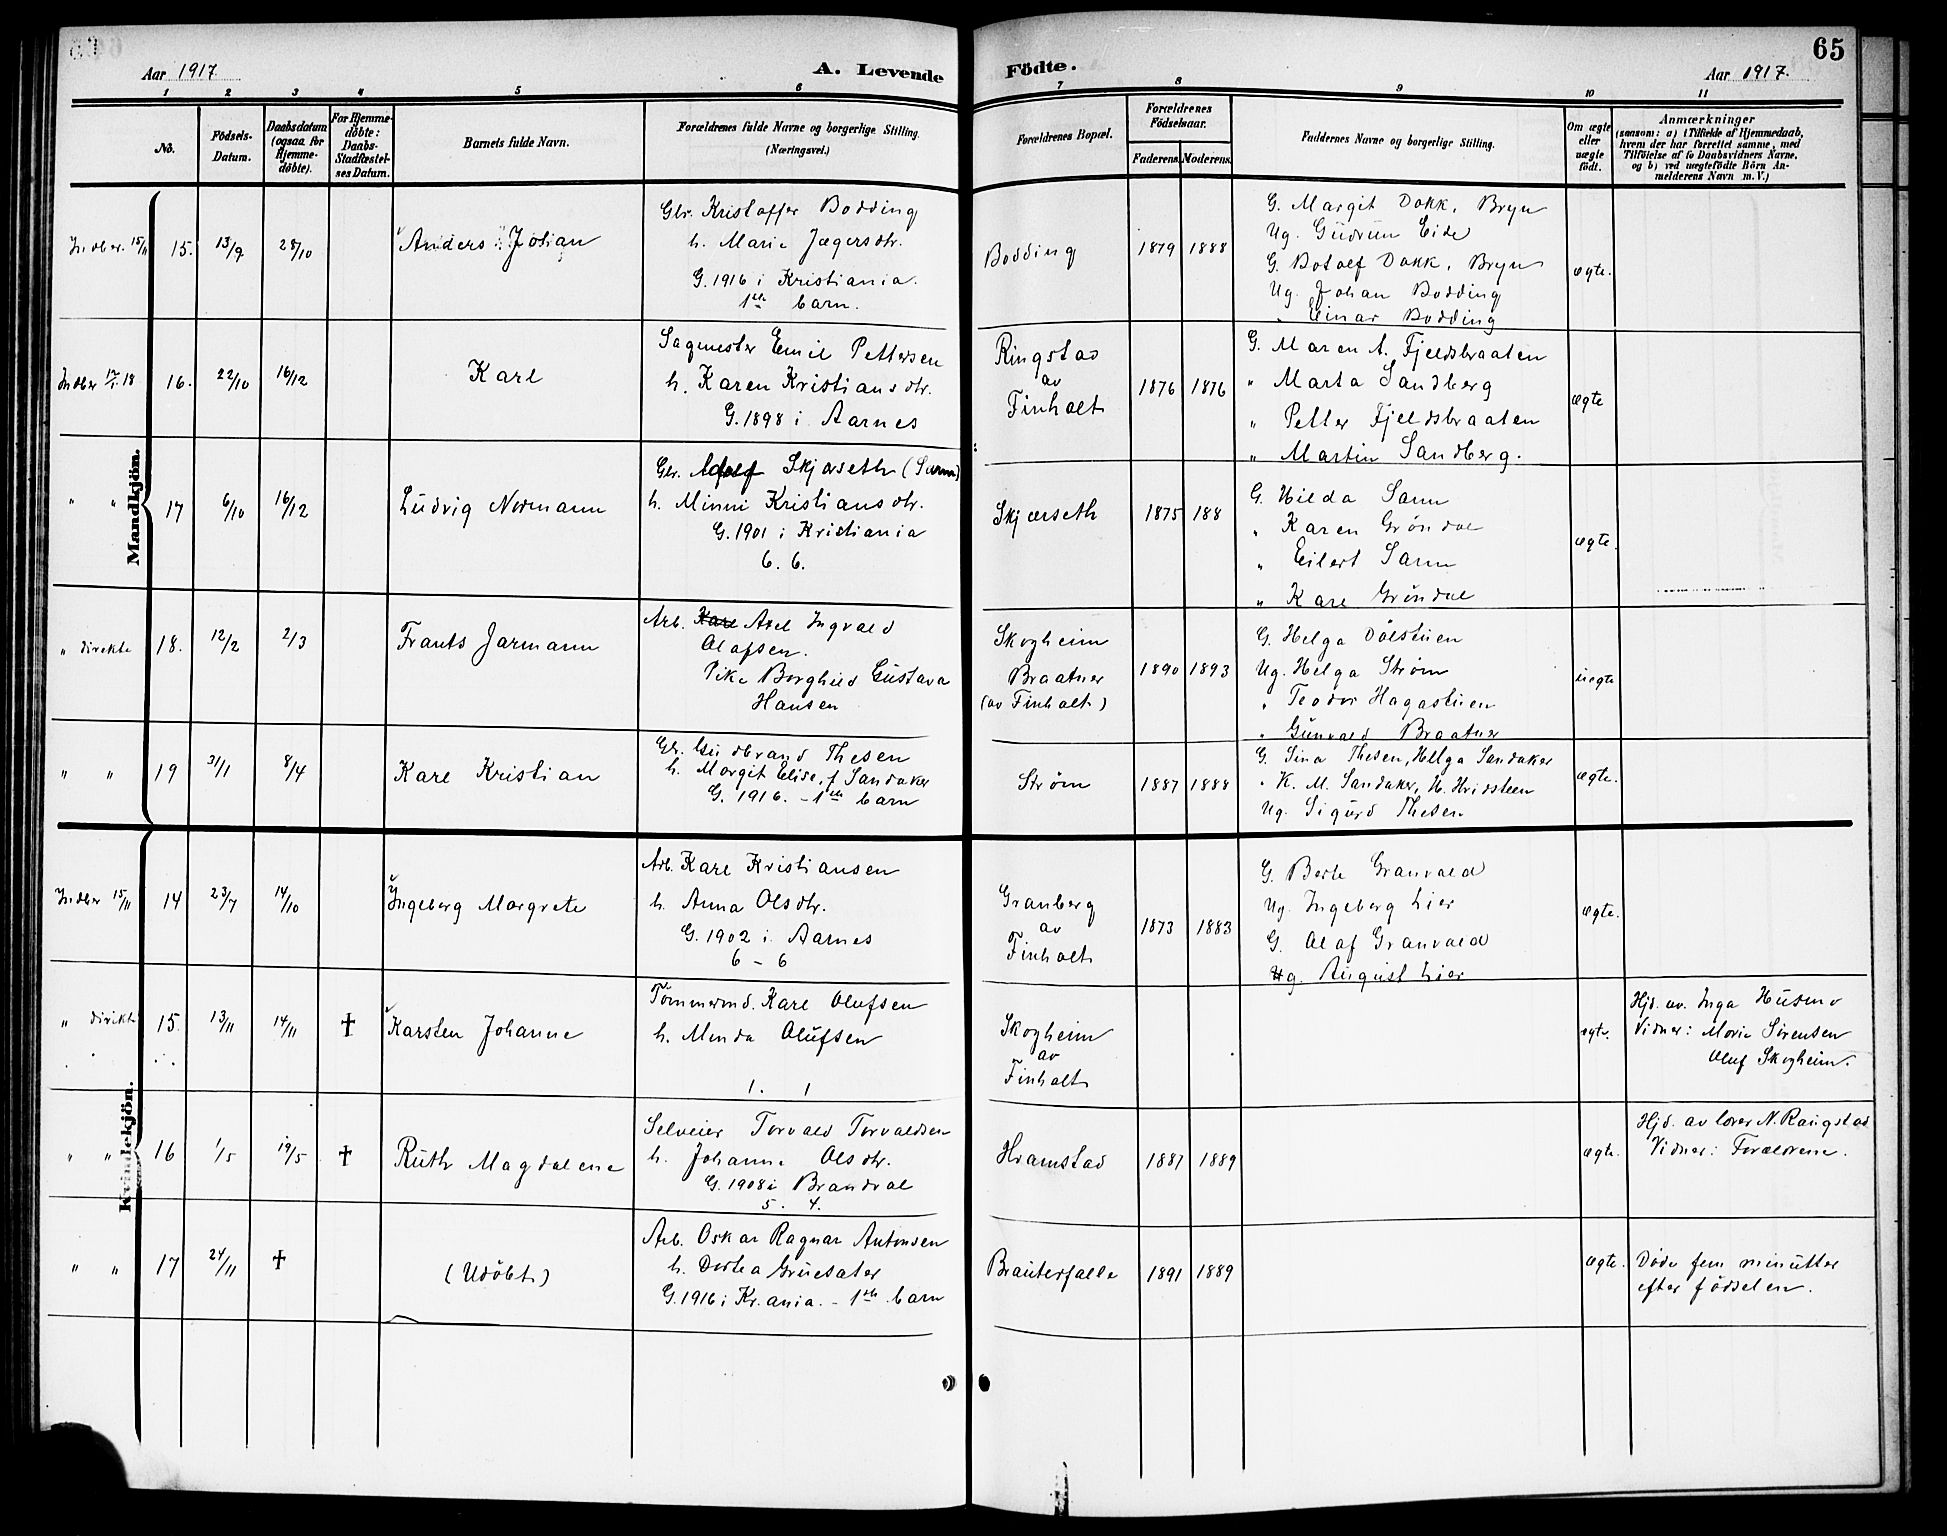 65
Aar 1917
A. Levende Födte.
Aar 1917.
1 2 3 4 5 6 7 8 9 10 11
No.
Födsels-
Datum.
Daabsdatum
(ogsaa for
Hjemme-
døbte).
For Hjemme-
döbte:
Daabs-
Stadfæstel-
ses Datum.
Barnets fulde Navn.
Forældrenes fulde Navne og borgerlige Stilling.
(Næringsvei.)
Forældrenes Bopæl.
Forældrenes
Födselsaar.
Faderens. Moderens.
Faddernes Navne og borgerlige Stilling.
Om ægte
eller
uægte
födt.
Anmærkninger
(saasom: a) i Tilfælde af Hjemmedaab,
hvem der har forrettet samme, med
Tilföielse af to Daabsvidners Navne,
og b) ved uægtefödte Börn An-
melderens Navn m. V.)
Mandkjön.
Indber. 15/11 15. 13/9 28/10 Anders Johan
Gbr. Kristoffer Bodding
h. Marie Jægersdtr.
G. 1916 i Kristiania.
1ste barn.
Bodding 1879 1888
G. Margit Dokk, Bryn
Ug. Gudrun Eide
G. Botolf Dokk, Bryn
Ug. Johan Bodding
" Einar Bodding
ægte.
Indber 17/1 18 16. 22/10 16/12 Karl
Sagmester Emil Pettersen
h. Karen Kristiansdtr.
G. 1898 i Aarnes
Ringstad
av
Finholt
1876 1876
G. Maren A. Fjeldsbraaten
" Marta Sandberg
" Petter Fjeldsbraaten
" Martin Sandberg.
ægte
" " 17 6/10 16/12 Ludvig Normann
Gbr. Adolf Skjærseth
h. Minni Kristiansdtr.
G. 1901 i Kristiania
6. 6.
Skjærseth 1875 188
G. Hilda Sann
" Karen Gröndal
" Eilert Sann
" Karl Gröndal
ægte.
" direkte 18. 12/2 2/3 Frants Jarmann
Arb. Karl Axel Ingvald
Olafsen.
Pike Borghild Gustava
Hansen
Skogheim
Braatner
(av Finholt)
1890 1893
G. Helga Dölstuen
Ug. Helga Strøm
" Teodor Hagastuen
" Gunvald Braatner
uegte
" " 19 31/1 8/4 Karl Kristian
Gbr. Gudbrand Thesen
h. Margit Elise, f. Sandaker
G. 1916. - 1ste barn
Strøm 1887 1888
G. Sina Thesen, Helga Sandaker
" K. M. Sandaker, H. Hvidsteen
Ug. Sigurd Thesen
ægte.
Kvindekjön.
Indber 15/11 14 23/7 14/10 Ingeborg Margrete
Arb. Karl Kristiansen
h. Anna Olsdtr.
G. 1902 i Aarnes
6 - 6
Granberg
av
Finholt
1873 1883
G. Berte Granvald
Ug. Ingeborg Lier
G. Olaf Granvald
Ug. August Lier
ægte.
" direkte 15. 13/11 14/11 † Karsten Johanne
Tømmermd. Karl Olufsen
h. Minda Olufsen
1. 1
Skogheim
av
Finholt
egte.
Hjd. av. Inga Husmo
Vidner: Marie Sørensen
Oluf Skogheim.
" " 16 1/5 19/5 † Ruth Magdalene
Selveier Torvald Torvaldsen
h. Johanne Olsdtr.
G. 1908 i Brandval
5. 4.
Hramstad 1887 1889
ægte.
Hjd. av lærer N. Rangstad
Vidner: Forældrene.
" " 17 24/11 † (Udöbt)
Arb. Oskar Ragnar Antonsen
h. Dortea Gruesæter
G. 1916 i Kr.ania. - 1ste barn
Brauterfalle 1891 1889
ægte.
Döde fem minutter
efter födselen.